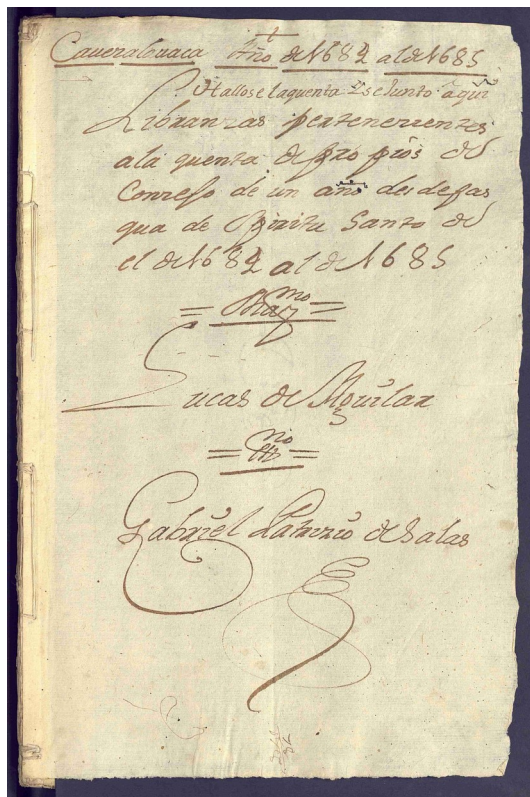 Caueralbuaca Año de 1684 al de 1685
Hallose la quenta Y se Junto aqui
Libranzas pertenecientes
ala quenta de propios del
Conzejo de un año desde pas
qua de Spiritu Santo de
el de 1684 al de 1685
Lucas de Aguilar
Gabriel Patricio de Salas